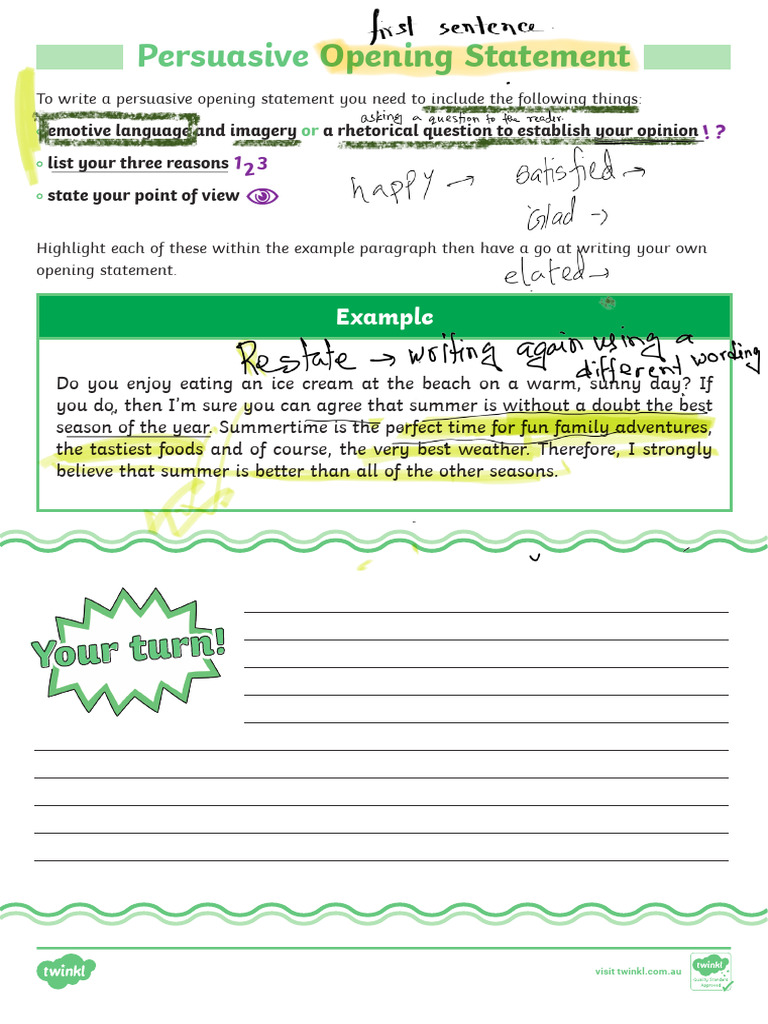 first sentence
Persuasive Opening Statement
To write a persuasive opening statement you need to include the following things:
asking a question to the reader.
emotive language and imagery or a rhetorical question to establish your opinion ! ?
list your three reasons 1 2 3
state your point of view
happy → satisfied →
Glad →
Highlight each of these within the example paragraph then have a go at writing your own
opening statement.
elated →
Example
Restate → writing again using a
different wording
Do you enjoy eating an ice cream at the beach on a warm, sunny day? If
you do, then I'm sure you can agree that summer is without a doubt the best
season of the year. Summertime is the perfect time for fun family adventures,
the tastiest foods and of course, the very best weather. Therefore, I strongly
believe that summer is better than all of the other seasons.
Your turn!
twinkl
visit twinkl.com.au
twinkl
Quality Standard
Approved